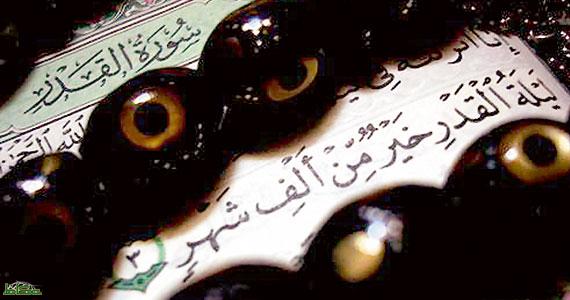 سُورَةُ الْقَدْرِ
إِنَّا أَنزَلْنَاهُ فِي
لَيْلَةُ الْقَدْرِ خَيْرٌ مِّنْ أَلْفِ شَهْرٍ ٣